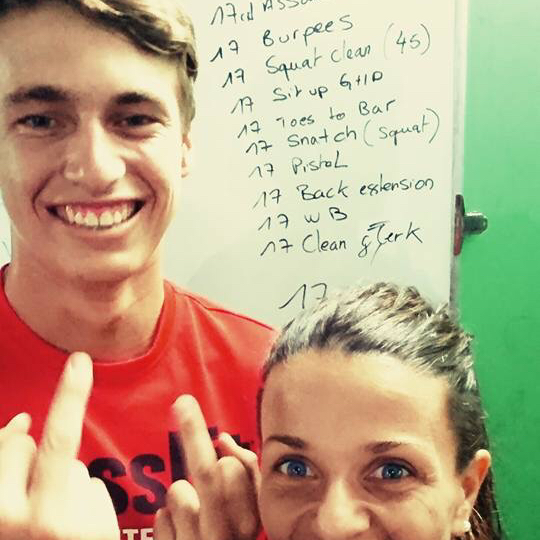 17
17 Burpees
17 Squat clean (45)
17 Sit up GHD
17 Toes to Bar
17 Snatch (squat)
17 Pistol
17 Back extension
17 WB
17 Clean & Jerk
17